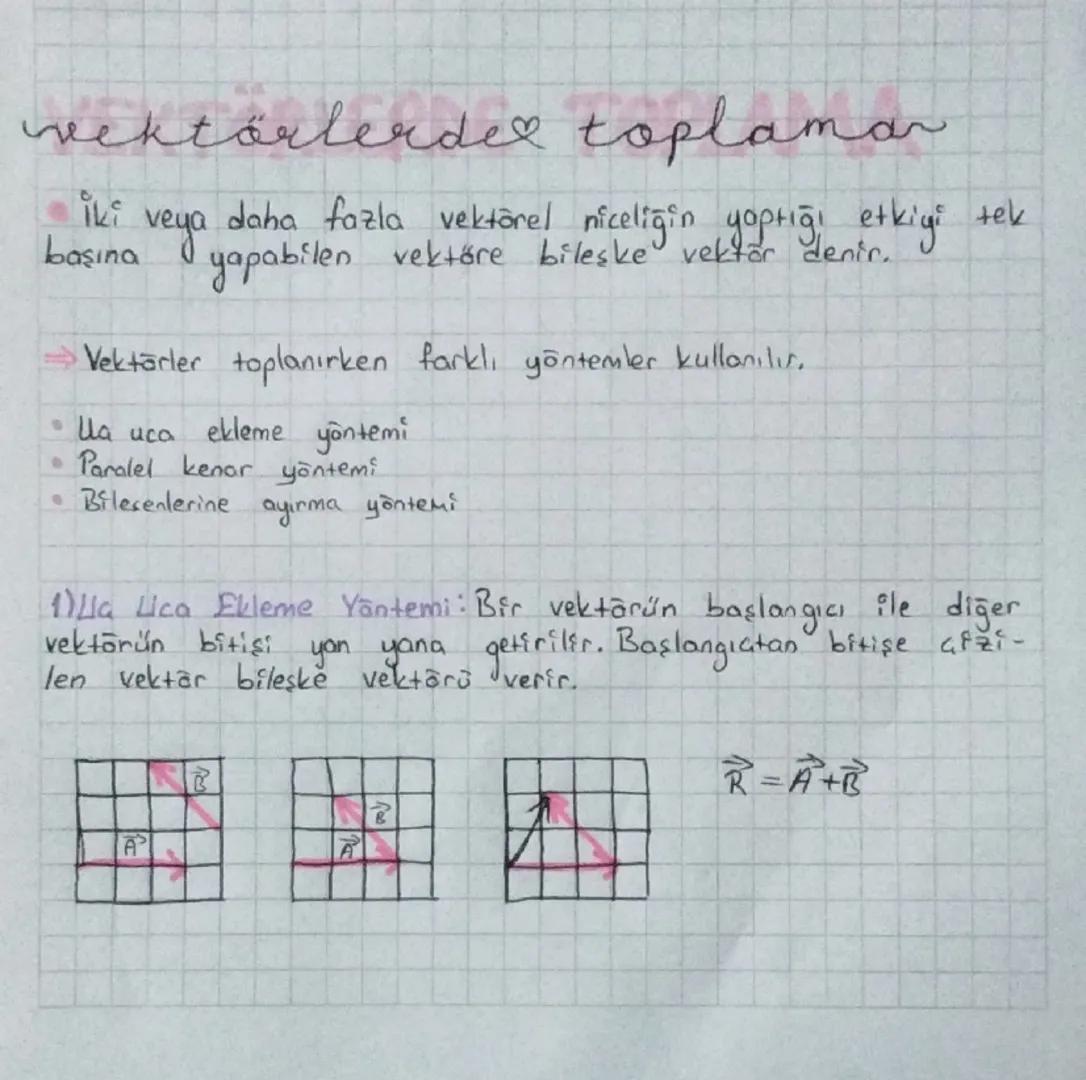 VEKTÖRLERDE TOPLAMA
vektörlerde toplama
İki veya daha fazla vektörel niceliğin yaptığı etkiyi tek
başına yapabilen vektöre bileşke vektör denir.
⇒ Vektörler toplanırken farklı yöntemler kullanılır.
• Uc uca ekleme yöntemi
• Paralel kenar yöntemi
• Bileşenlerine ayırma yöntemi
1) Uc Uca Ekleme Yöntemi: Bir vektörün başlangıcı ile diğer
vektörün bitişi yan yana getirilir. Başlangıçtan bitişe çizi-
len vektör bileşke vektörü verir.
B⃗
A⃗
B⃗
A⃗
R⃗ = A⃗ + B⃗